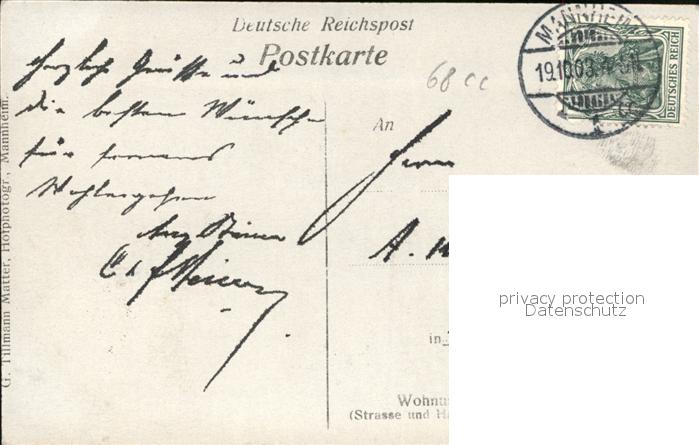 Deutsche Reichspost
Postkarte
MANNHEIM
19.10.03.
1
DEUTSCHES REICH
68 cc
Herzliche Grüsse und
die besten Wünsche
für ferneres
Wohlergehen
An
Herrn
A.
in
Wohnu
(Strasse und H
G. Tillmann Matter, Hofphotogr., Mannheim.
privacy protection
Datenschutz